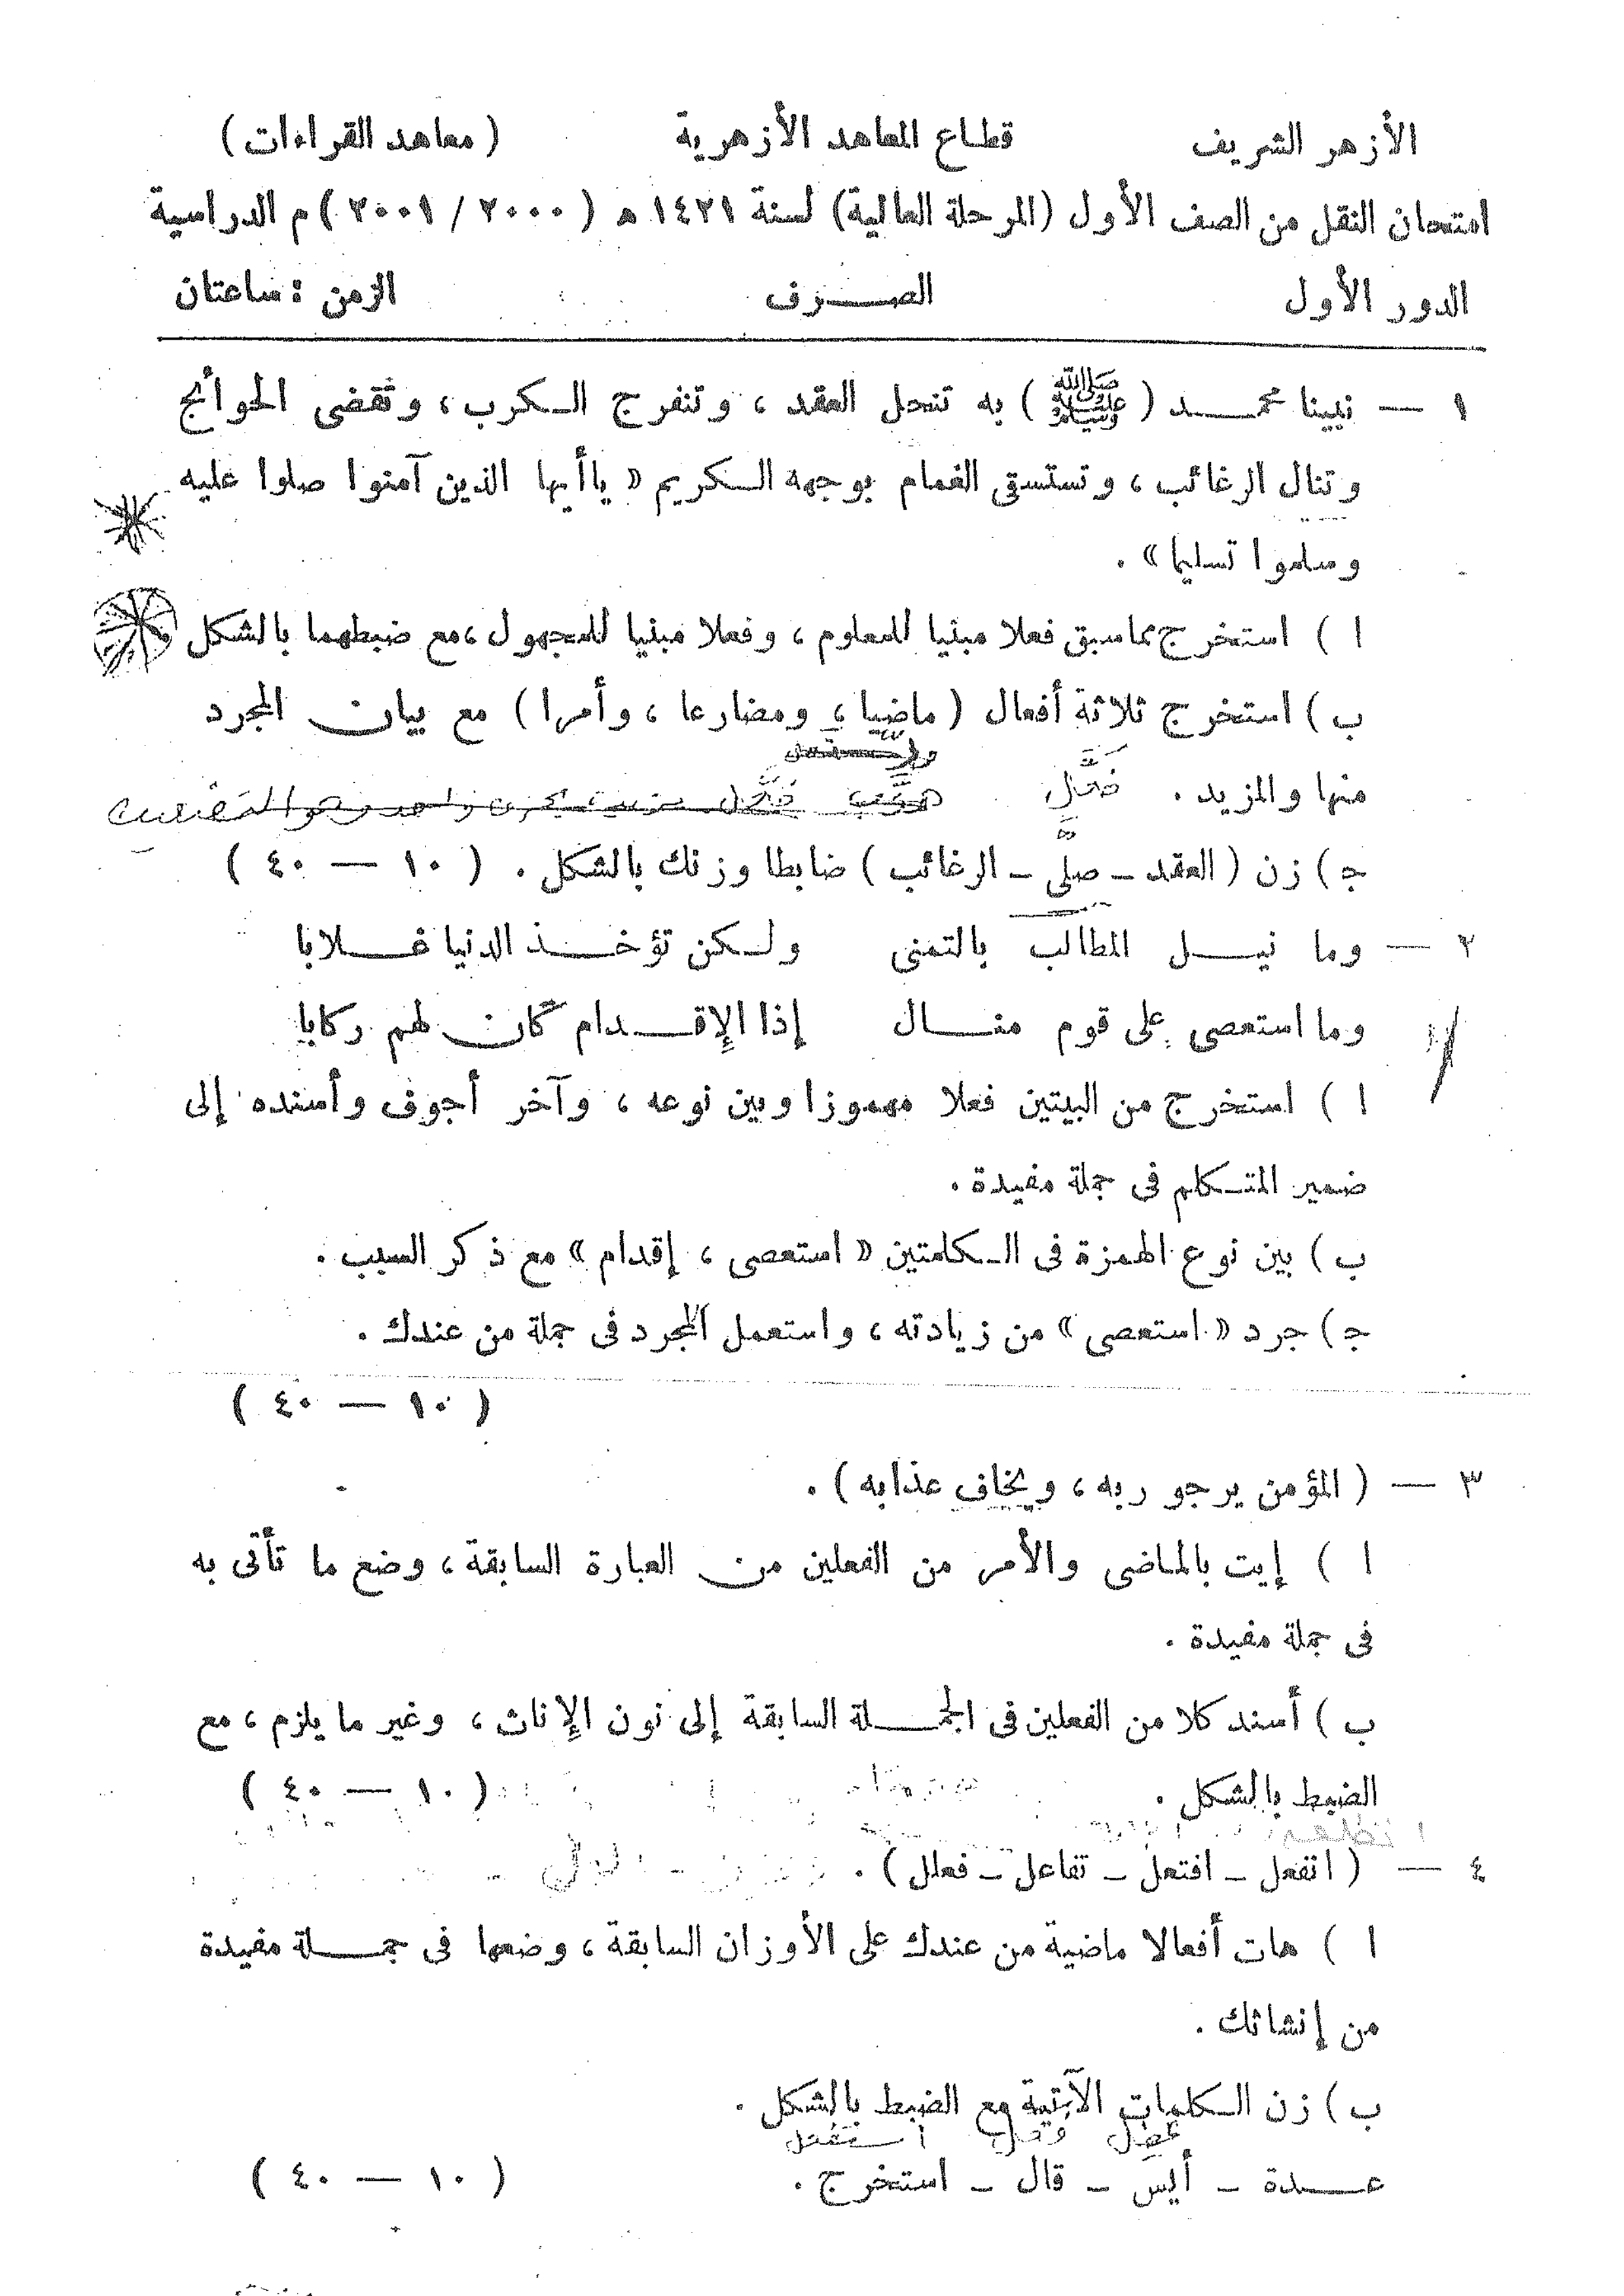 الأزهر الشريف قطاع المعاهد الأزهرية ( معاهد القراءات )
امتحان النقل من الصف الأول (المرحلة العالية) لسنة ١٤٢١ ه ( ٢٠٠٠ / ٢٠٠١ ) م الدراسية
الدور الأول الصرف الزمن : ساعتان
١ — نبينا محمد ( ﷺ ) به تنحل العقد ، وتنفرج الكرب ، وتقضى الحوائج
وتنال الرغائب ، وتستسقى الغمام بوجهه الكريم « ياأيها الذين آمنوا صلوا عليه
وسلموا تسليما » .
ا ) استخرج مماسبق فعلا مبنيا للمعلوم ، وفعلا مبنيا للمجهول ، مع ضبطهما بالشكل
ب ) استخرج ثلاثة أفعال ( ماضيا ، ومضارعا ، وأمرا ) مع بيان المجرد
منها والمزيد . فَعَّل
ج ) زن ( العقد – صلَّى – الرغائب ) ضابطا وزنك بالشكل . ( ١٠ — ٤٠ )
٢ — وما نيل المطالب بالتمنى ولكن تؤخذ الدنيا غلابا
وما استعصى على قوم منال إذا الإقدام كان لهم ركابا
ا ) استخرج من البيتين فعلا مهموزا وبين نوعه ، وآخر أجوف وأسنده إلى
ضمير المتكلم فى جملة مفيدة .
ب ) بين نوع الهمزة فى الكلمتين « استعصى ، إقدام » مع ذكر السبب .
ج ) جرد « استعصى » من زيادته ، واستعمل المجرد فى جملة من عندك .
( ١٠ — ٤٠ )
٣ — ( المؤمن يرجو ربه ، ويخاف عذابه ) .
ا ) إيت بالماضى والأمر من الفعلين من العبارة السابقة ، وضع ما تأتى به
فى جملة مفيدة .
ب ) أسند كلا من الفعلين فى الجملة السابقة إلى نون الإناث ، وغير ما يلزم ، مع
الضبط بالشكل . ( ١٠ — ٤٠ )
٤ — ( انفعل – افتعل – تفاعل – فعلل ) .
ا ) هات أفعالا ماضية من عندك على الأوزان السابقة ، وضعها فى جملة مفيدة
من إنشائك .
ب ) زن الكلمات الآتية مع الضبط بالشكل .
استفعل
عدة – أيس – قال – استخرج . ( ١٠ — ٤٠ )